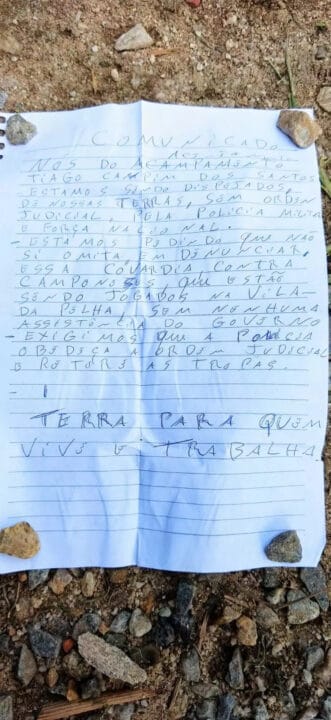 COMUNICADO
NÓS DO ACAMPAMENTO
TIAGO CAMPIM DOS SANTOS
ESTAMOS SENDO DISPEJADOS,
DE NOSSAS TERRAS, SEM ORDEM
JUDICIAL, PELA POLICIA MILITAR
E FORÇA NACIONAL.
- ESTAMOS PEDINDO QUE NÃO
SI OMITA, EM DENUNCIAR
ESSA COVARDIA CONTRA
CAMPONOSES, QUE ESTÃO
SENDO JOGADOS NA VILA
DA PELHA, SEM NENHUMA
ASSISTÊNCIA DO GOVERNO
- EXIGIMOS QUE A POLICIA
OBEDEÇA A ORDEM JUDICIAL
E RETIRE AS TROPAS.
TERRA PARA QUEM
VIVE E TRABALHA